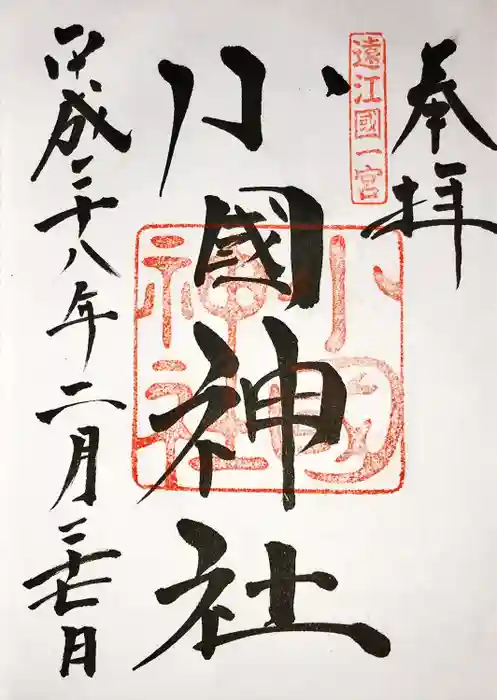 奉拝
遠江國一宮
小國神社
小國神社
平成二十八年二月二十七日